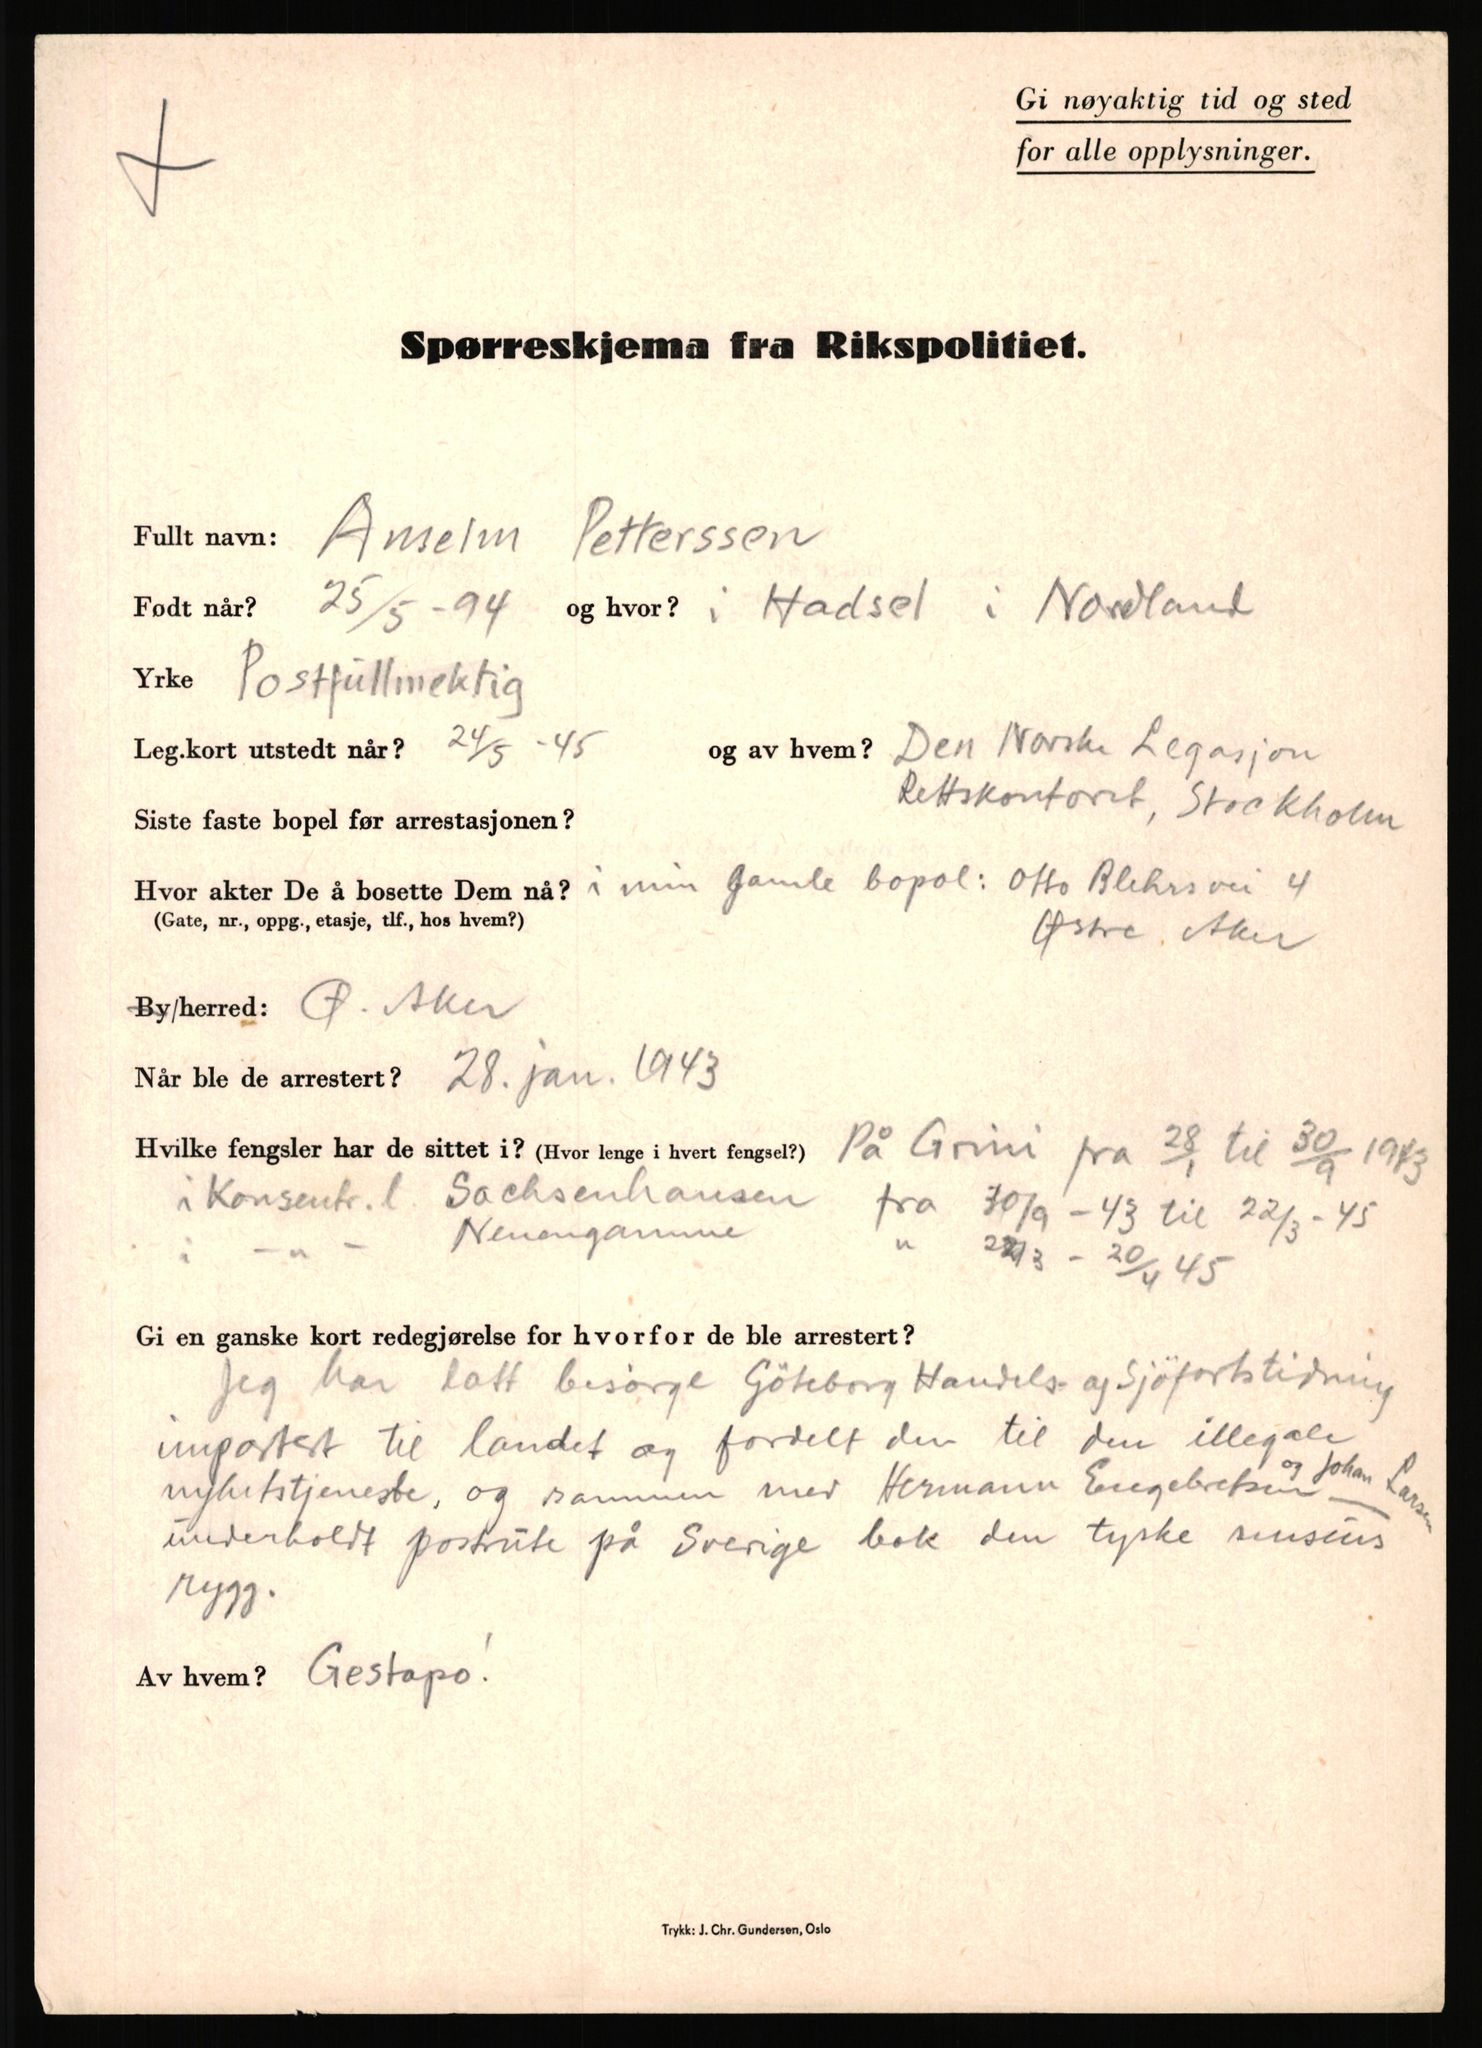 Gi nøyaktig tid og sted
for alle opplysninger.
Spørreskjema fra Rikspolitiet.
Fullt navn: Anselm Petterssen
Født når? 25/5 - 94 og hvor? i Hadsel i Nordland
Yrke Postfullmektig
Leg.kort utstedt når? 24/5 - 45 og av hvem? Den Norske Legasjon
Rettskontoret, Stockholm
Siste faste bopel før arrestasjonen?
Hvor akter De å bosette Dem nå? i min gamle bopel: Otto Blehrs vei 4
(Gate, nr., oppg., etasje, tlf., hos hvem?) Østre Aker
By/herred: Ø. Aker
Når ble de arrestert? 28. jan. 1943
Hvilke fengsler har de sittet i? (Hvor lenge i hvert fengsel?) På Grini fra 28/1 til 30/9 1943
i Konsentr. l. Sachsenhausen fra 30/9 - 43 til 22/3 - 45
i - " - Neuengamme " 22/3 - 20/4 45
Gi en ganske kort redegjørelse for hvorfor de ble arrestert?
Jeg har latt besörge Göteborg Handels- og Sjöfartstidning
importert til landet og fordelt den til den illegale
nyhetstjeneste, og sammen med Hermann Engebretsen og Johan Larsen
underholdt postrute på Sverige bak den tyske sensurs
rygg.
Av hvem? Gestapo!
Trykk: J. Chr. Gundersen, Oslo